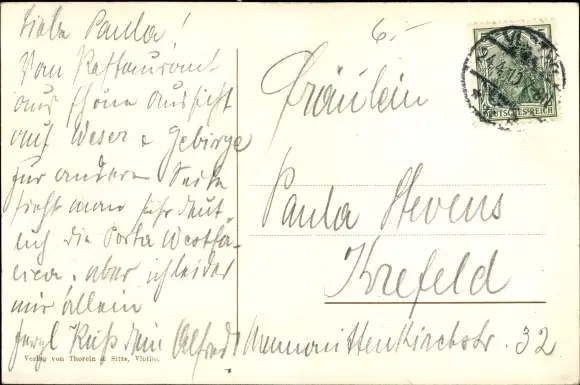 Liebe Paula!
Vom Restaurant
aus schöne Aussicht
auf Weser & Gebirge
zur andern Seite
sieht man sehr deut-
lich die Porta Westfa-
lica. aber ich leider
nur allein
Kuß Dein Alfred
Verlag von Thorein & Sitte, Vlotho.
6.-
DEUTSCHES REICH
Fräulein
Paula Stevens
Krefeld
Mennonittenkirchstr. 32